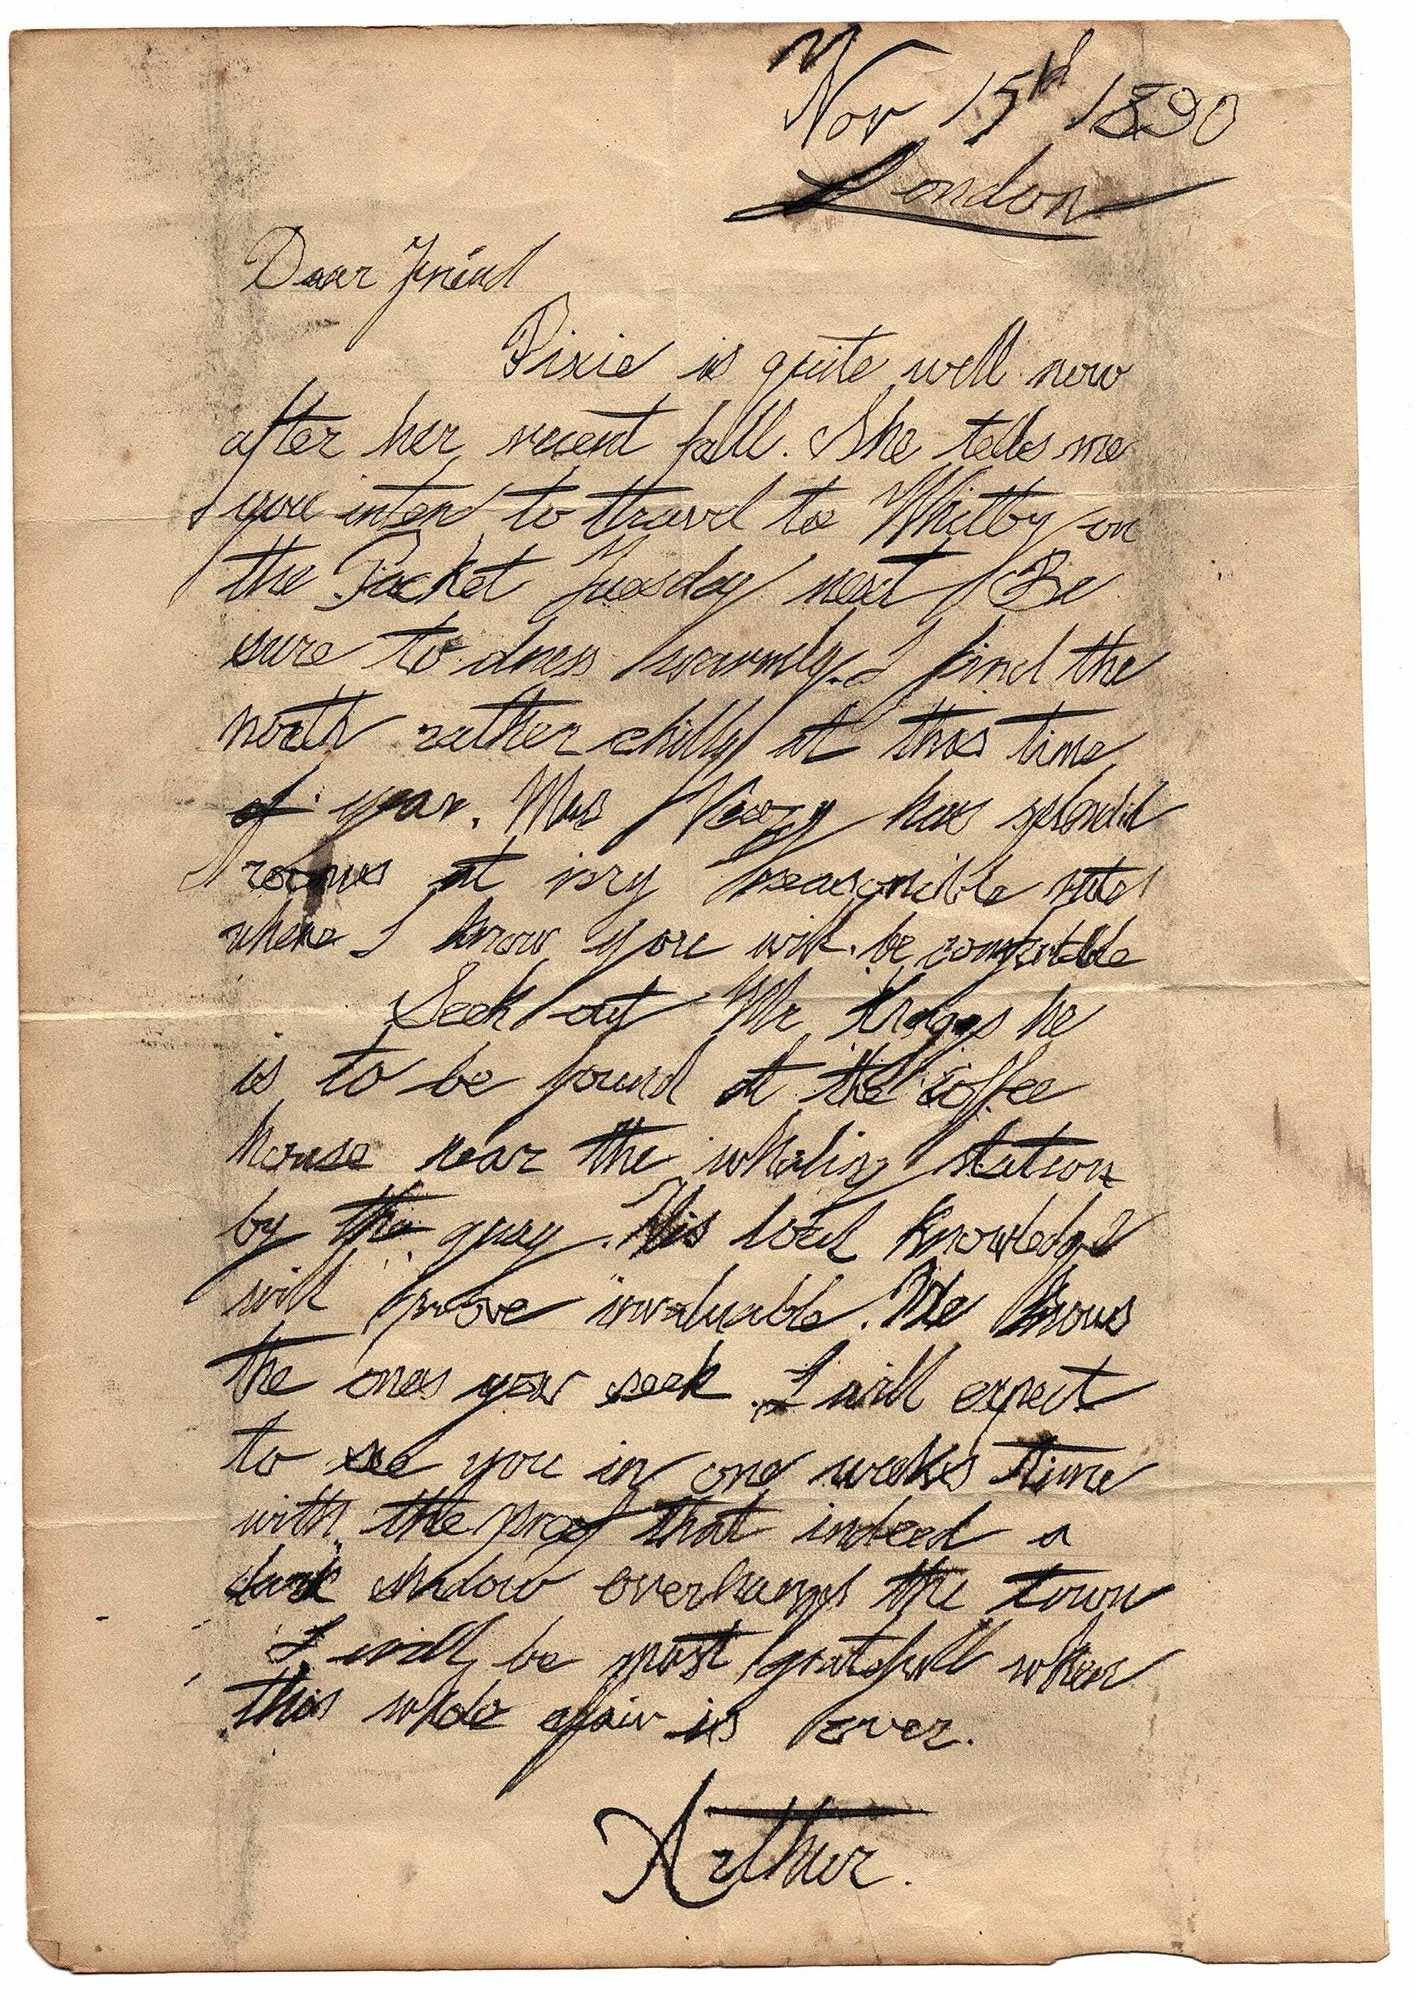 Nov 15th 1890
London
Dear Friend
Pixie is quite well now
after her recent fall. She tells me
you inten to travel to Whitby on
the Packet Tuesday next. Be
sure to dress warmly. I find the
north rather chilly at this time
of year. Mrs has splendid
rooms at very reasonible rates
where I know you will be comfortable
Seek out Mr he
is to be found at the coffee
house near the whaling station
by the quay. His local knowledge
will prove invaluable. He knows
the ones you seek. I will expect
to see you in one weeks time
with the proof that indeed a
dark shadow overhangs the town
I will be most gratefull when
this whole afair is over.
Arthur.